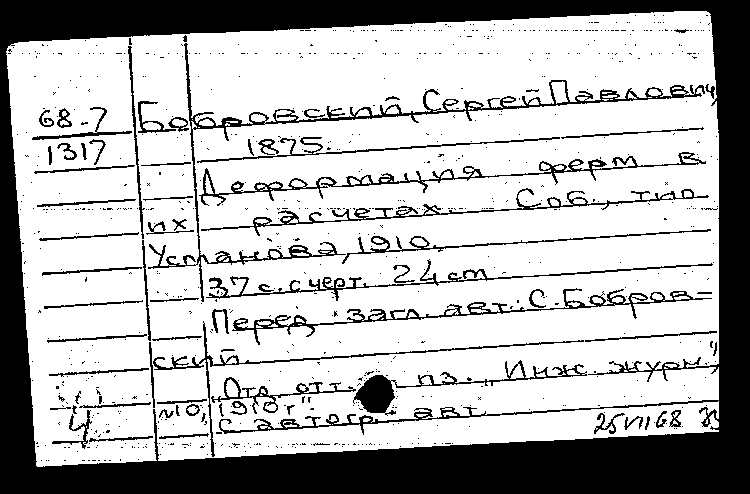 68-7 Бобровский, Сергей Павлович,
1317 1875.
Деформация ферм в
их расчетах. Спб., тип
Усманова, 1910.
37 с. с черт. 24 см.
Перед загл. авт.: С. Бобров-
ский.
"Отд. отт. из. "Инж. журн",
4 №10, 1910г"
с автогр. авт
25 VII 68